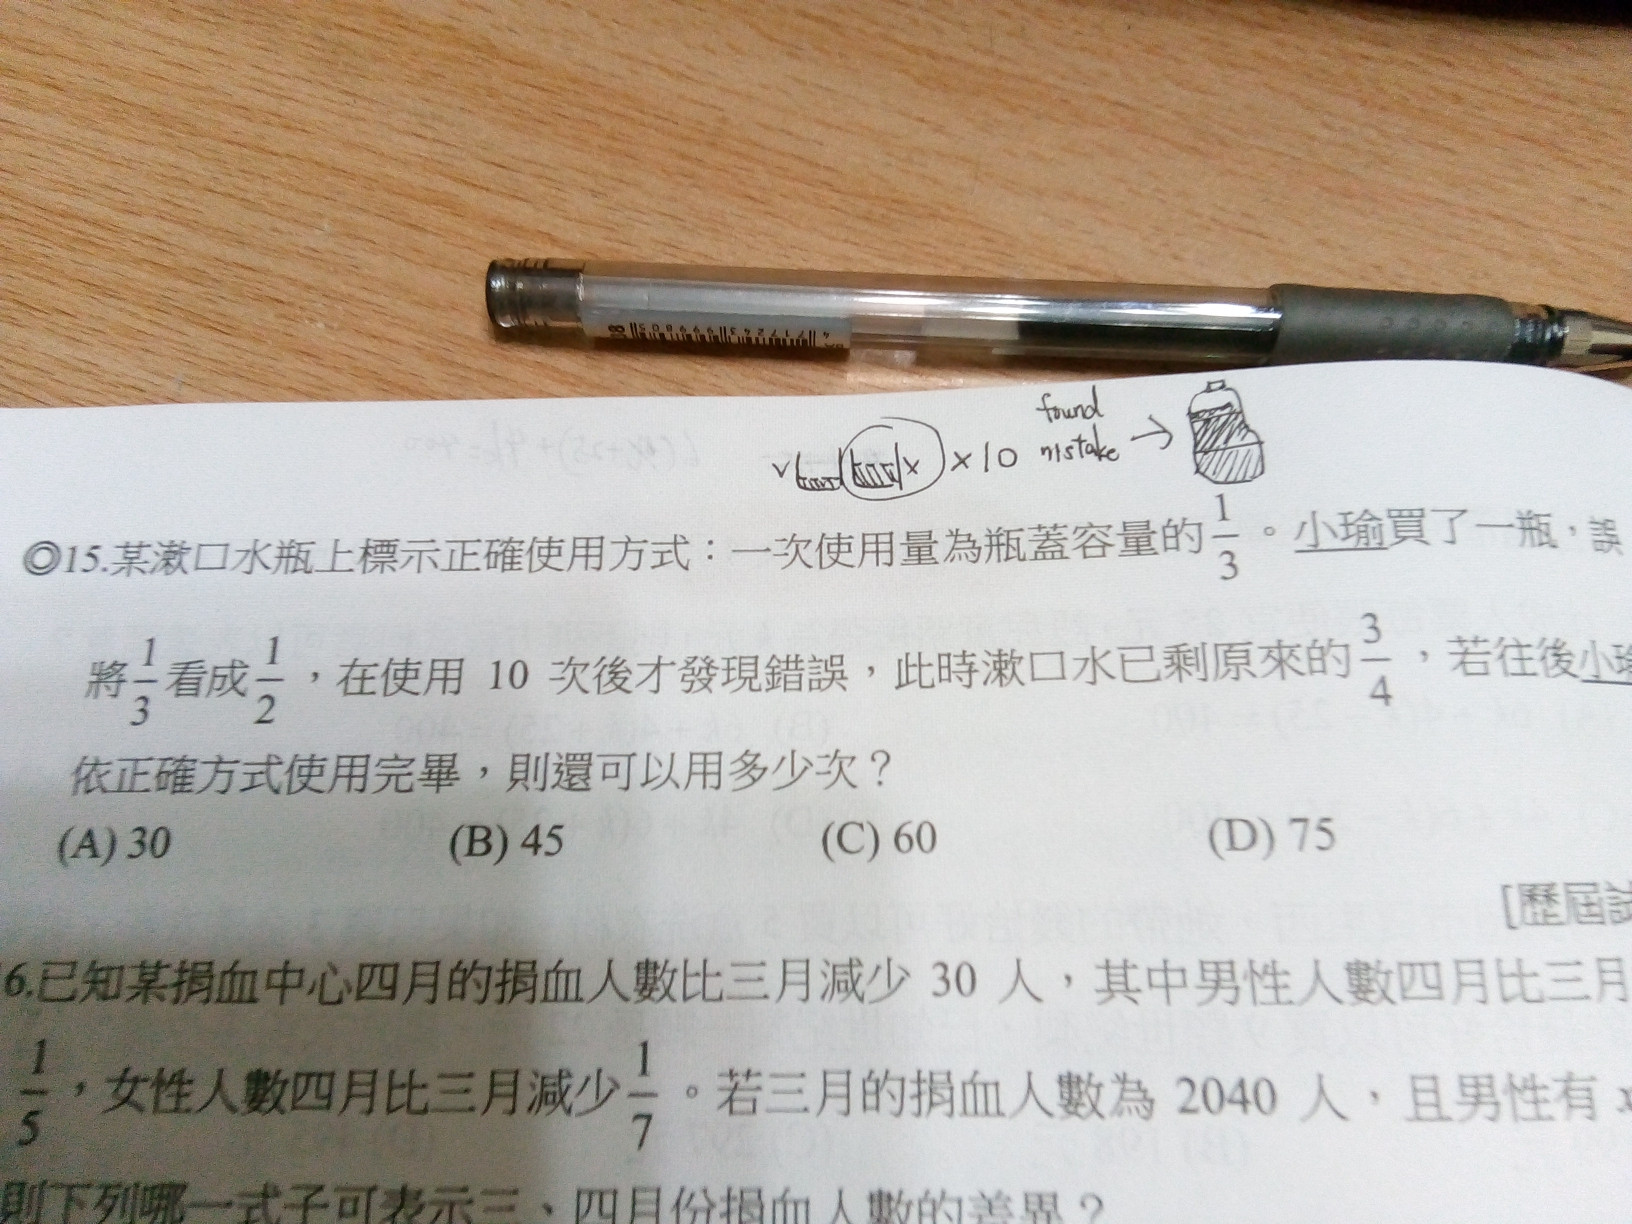 found
mistake
× 10
◎15.某漱口水瓶上標示正確使用方式：一次使用量為瓶蓋容量的 1/3 。小瑜買了一瓶，誤
將 1/3 看成 1/2 ，在使用 10 次後才發現錯誤，此時漱口水已剩原來的 3/4 ，若往後小瑜
依正確方式使用完畢，則還可以用多少次？
(A) 30 (B) 45 (C) 60 (D) 75
[歷屆試
6.已知某捐血中心四月的捐血人數比三月減少 30 人，其中男性人數四月比三月
1/5 ，女性人數四月比三月減少 1/7 。若三月的捐血人數為 2040 人，且男性有 x
則下列哪一式子可表示三、四月份捐血人數的差異？